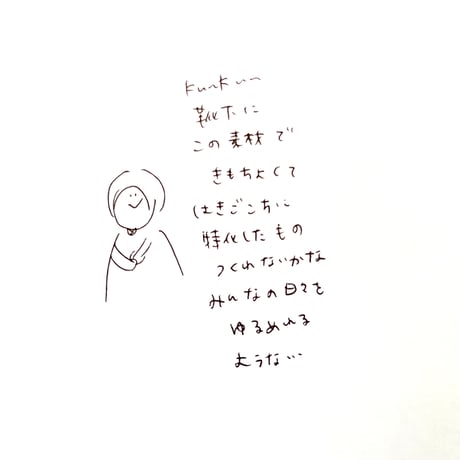 kunkun
靴下に
この素材で
きもちよくて
はきごこちに
特化したもの
つくれないかな
みんなの日々を
ゆるめれる
ような…